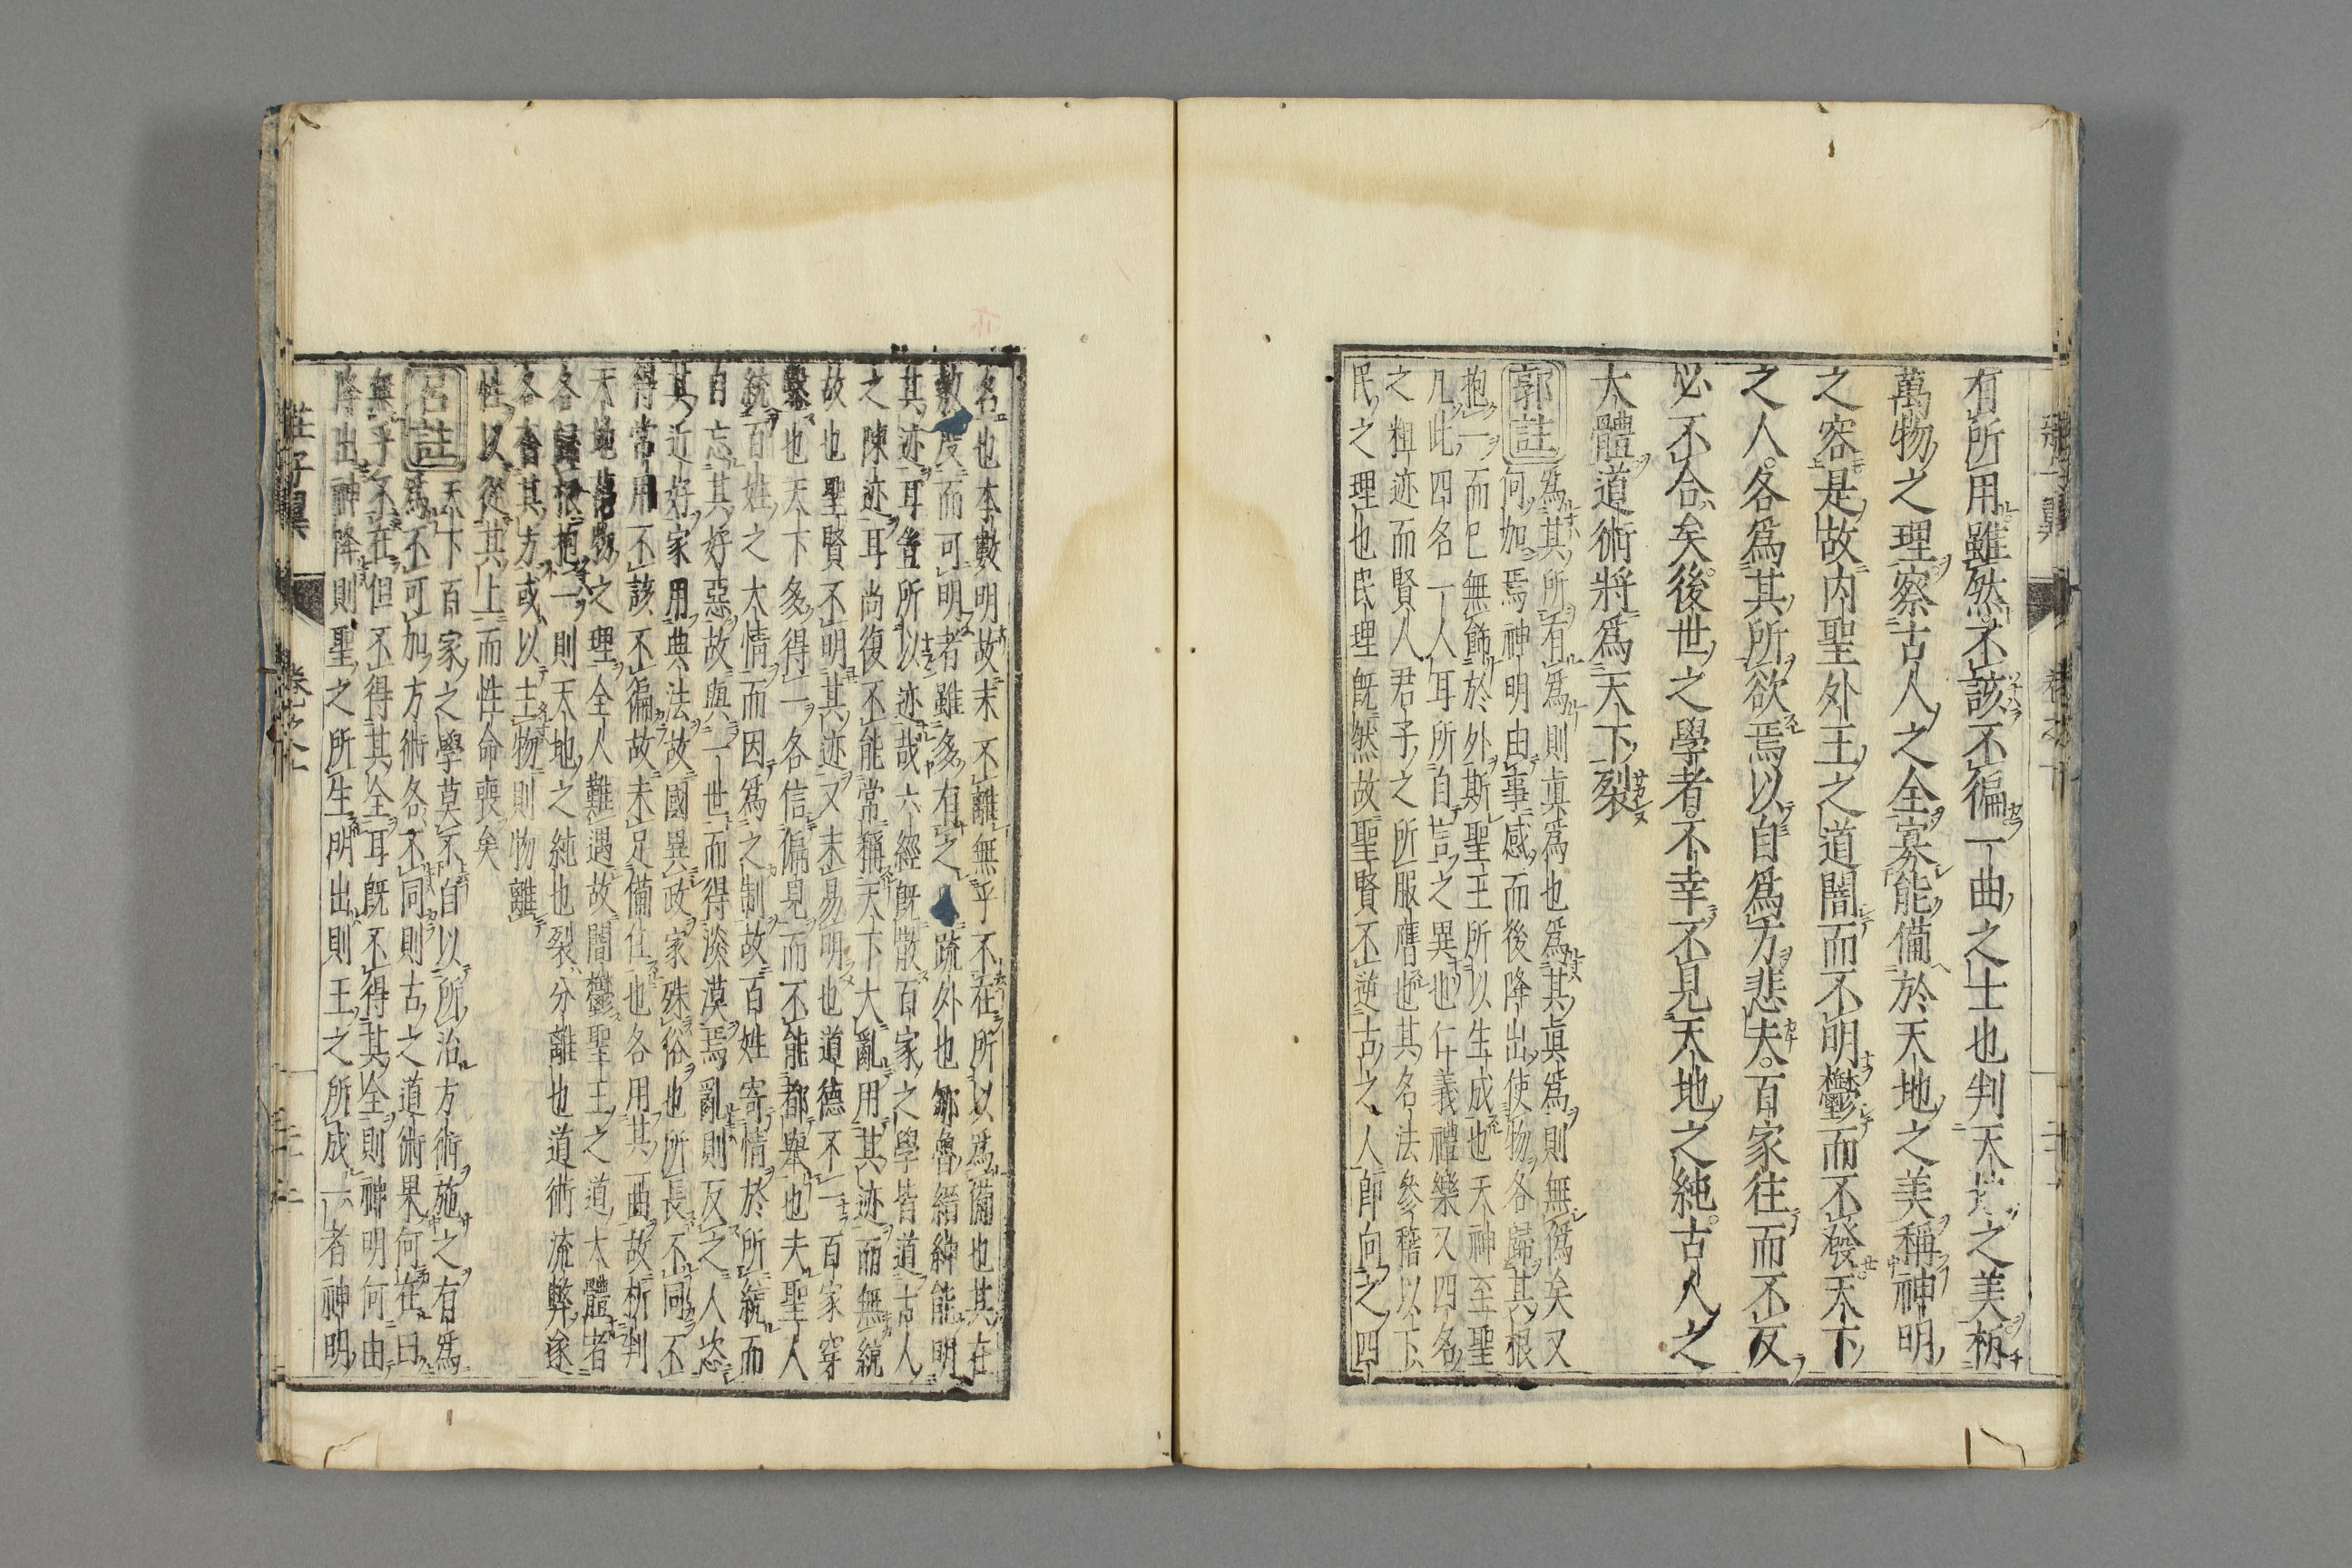 有所用雖然不該不徧一曲之士也判天地之美析
萬物之理察古人之全寡能備於天地之美稱神明
之容是故内聖外王之道闇而不明鬱而不發天下
之人各爲其所欲焉以自爲方悲夫百家往而不反
必不合矣後世之學者不幸不見天地之純古人之
大體道術將爲天下裂
郭註
爲其所有爲則眞爲也爲其眞爲則無僞矣又
何加焉神明由事感而後降出使物各歸其根
抱一而已無飾於外斯聖王所以生成也天神至聖
凡此四名一人耳所自言之異也仁義禮樂又四名
之粗迹而賢人君子之所服膺也其名法參稽以下
民之理也民理既然故聖賢不逆古之人即向之四
名也本數明故末不離無乎不在所以爲備也其在
數度而可明者雖多有之疏外也鄒魯縉紳能明
其迹耳豈所以迹哉六經既散百家之學皆道古人
之陳迹耳尚復不能常稱天下大亂用其迹而無統
故也聖賢不明其迹又未易明也道德不一百家穿
鑿也天下多得一各信偏見而不能都舉也夫聖人
統百姓之大情而因爲之制故百姓寄情於所統而
自忘其好惡故與一世而得淡漠焉亂則反之人恣
其近好家用典法故國異政家殊俗也所長不同不
得常用不該不徧故未足備任也各用其曲故析判
天地萬物之理全人難遇故闇鬱聖王之道大體者
各歸根抱一則天地之純也裂分離也道術流弊遂
各奮其方或以主物則物離
性以從其上而性命喪矣
呂註
天下百家之學莫不自以所治方術施之有爲
爲不可加方術各不同則古之道術果何在曰
無乎不在但不得其全耳既不得其全則神明何由
降出神降則聖之所生明出則王之所成一者神明
莊子翼
卷之八